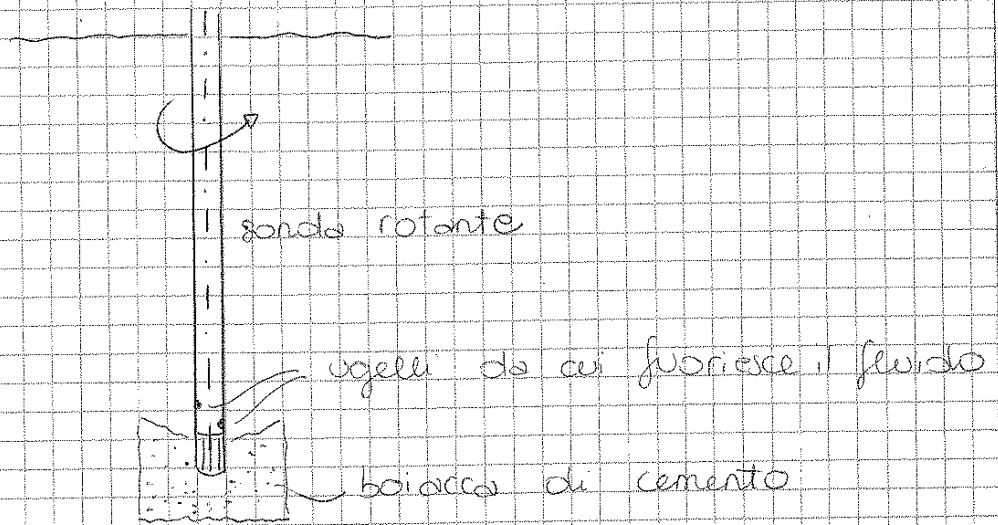 sonda rotante
ugelli da cui fuoriesce il fluido
boiacca di cemento